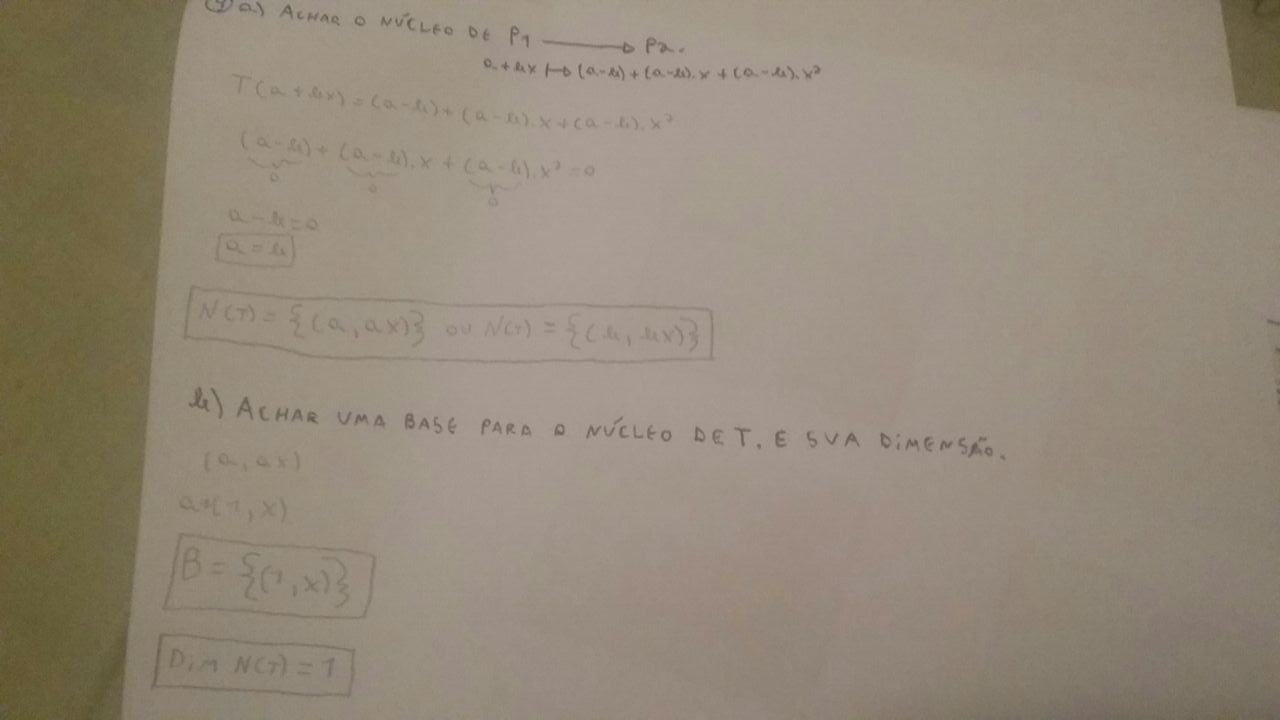 a) ACHAR O NÚCLEO DE P1 → P2.
a+bx ↦ (a-b)+(a-b).x+(a-b).x²
T(a+bx)=(a-b)+(a-b).x+(a-b).x²
(a-b)+(a-b).x+(a-b).x²=0
0 0 0
a-b=0
a=b
N(T)={(a,ax)} OU N(T)={(b,bx)}
b) ACHAR UMA BASE PARA O NÚCLEO DE T. E SUA DIMENSÃO.
(a,ax)
a(1,x)
B={(1,x)}
Dim N(T)=1